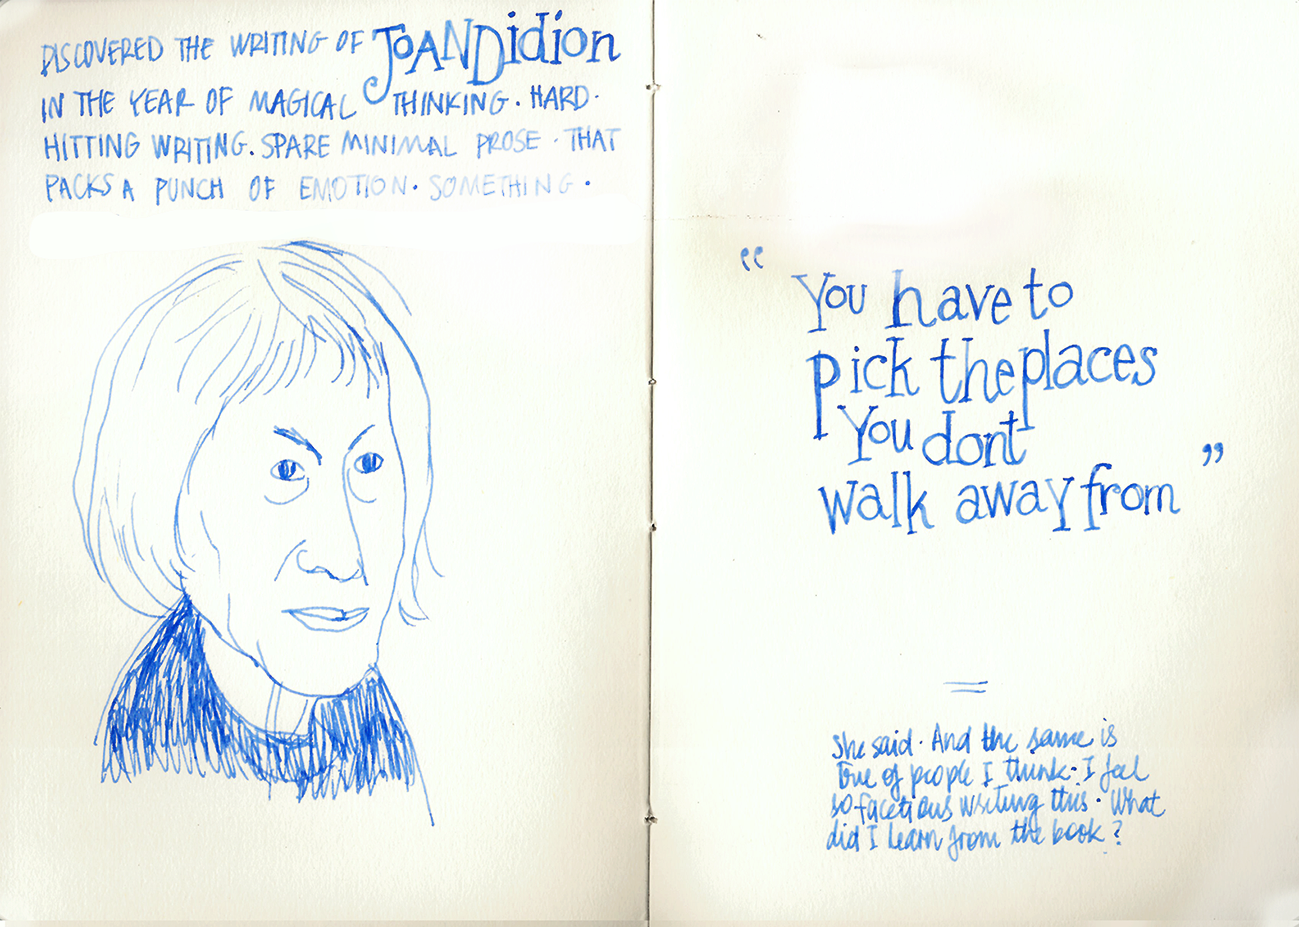 DISCOVERED THE WRITING OF JOANDidion
IN THE YEAR OF MAGICAL THINKING. HARD.
HITTING WRITING. SPARE MINIMAL PROSE. THAT
PACKS A PUNCH OF EMOTION. SOMETHING.
“ You have to
pick the places
You dont
walk away from ”
She said. And the same is
true of people I think. I feel
so facetious writing this. What
did I learn from the book?